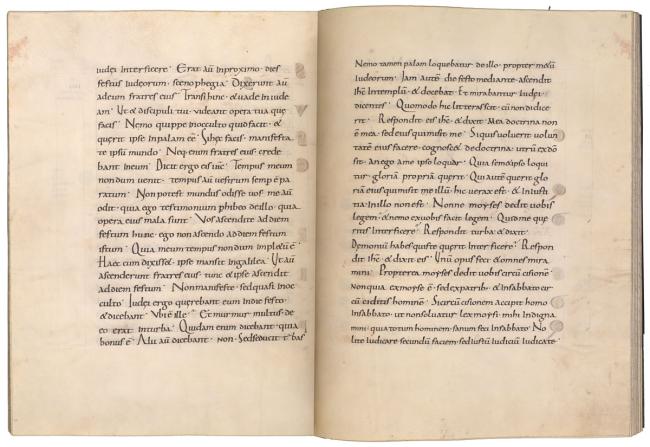 iudęi interficere · Erat aū inproximo · dies
festus iudęorum · scenophegia · Dixerunt aū
adeum fratres eius · Transi hinc · & uade in iudę
am · Ut & discipuli tui · uideant opera tua quę
facis · Nemo quippe inocculto quid facit · &
querit ipse inpalam eē · Si hęc facis · manifesta
te ipsū mundo · Neq· enim fratres eius crede
bant ineum · Dicit ergo eis ihc · Tempus meum
nondum uenit · tempus aū uestrum semp ē pa
ratum · Non potest mundus odisse uos · me aū
odit · quia ego testimonium phibeo deillo · quia
opera eius mala sunt · Vos ascendite addiem
festum hunc · ego non ascendo addiem festum
istum · Quia meum tempus nondum impletū ē ·
Haec cum dixisset · ipse mansit ingalilea · Ut aū
ascenderunt fratres eius · tunc & ipse ascendit
addiem festum · Non manifeste · sed quasi inoc
culto · Iudęi ergo querebant eum indie festo ·
& dicebant · Vbi ē ille · Et murmur multus · de
eo erat inturba · Quidam enim dicebant · quia
bonus ē · Alii aū dicebant · non · Sed seducit tbas
Nemo tamen palam loquebatur · de illo · propter metū
iudeorum · Iam autē die festo mediante · ascendit
ihc intemplū · & docebat · Et mirabantur iudęi
dicentes · Quomodo hic litteras scit · cū non didice
rit · Respondit eis ihc · & dixit · Mea doctrina non
ē mea · sed eius qui misit me · Siquis uoluerit uolun
tatē eius facere · cognosc& de doctrina · utrū exdō
sit · an ego ame ipso loquar · Qui a semetipso loqui
tur · gloriā propriā querit · Qui autē querit glo
riā eius qui misit me illū · hic uerax est · & iniusti
tia inillo non est · Nonne moyses dedit uobis
legem · & nemo exuobis facit legem · Quid me quę
ritis interficere · Respondit turba & dixit
Demoniū habes quis te querit interficere · Respon
dit ihc · & dixit eis · Unū opus feci · & omnes mira
mini · Propterea moyses dedit uobis circūcisionē ·
non quia exmoyse ē · sed expatrib· · & insabbato cir
cūciditis hominē · Si circūcisionem accipit homo
insabbato · ut nonsoluatur lex moysi · mihi indigna
mini · quia totum hominem · sanum feci insabbato · No
lite iudicare secundū faciem · sed iustū iudiciū iudicate ·